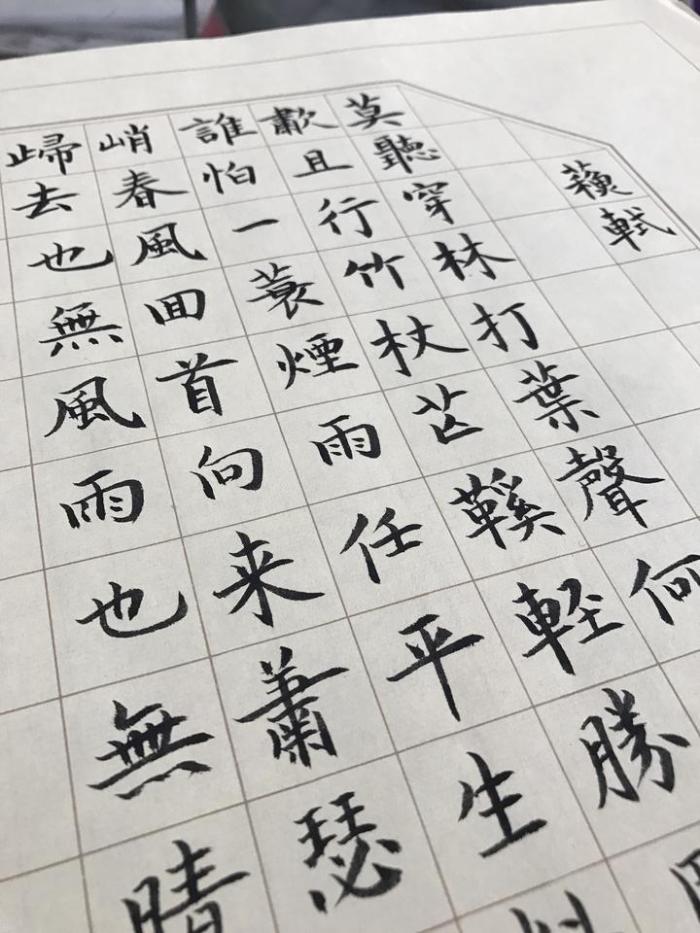 蘓軾
莫聽穿林打葉聲何
歗且行竹杖芒鞵軽勝
誰怕一蓑煙雨任平生
峭春風回首向来蕭瑟
歸去也無風雨也無晴